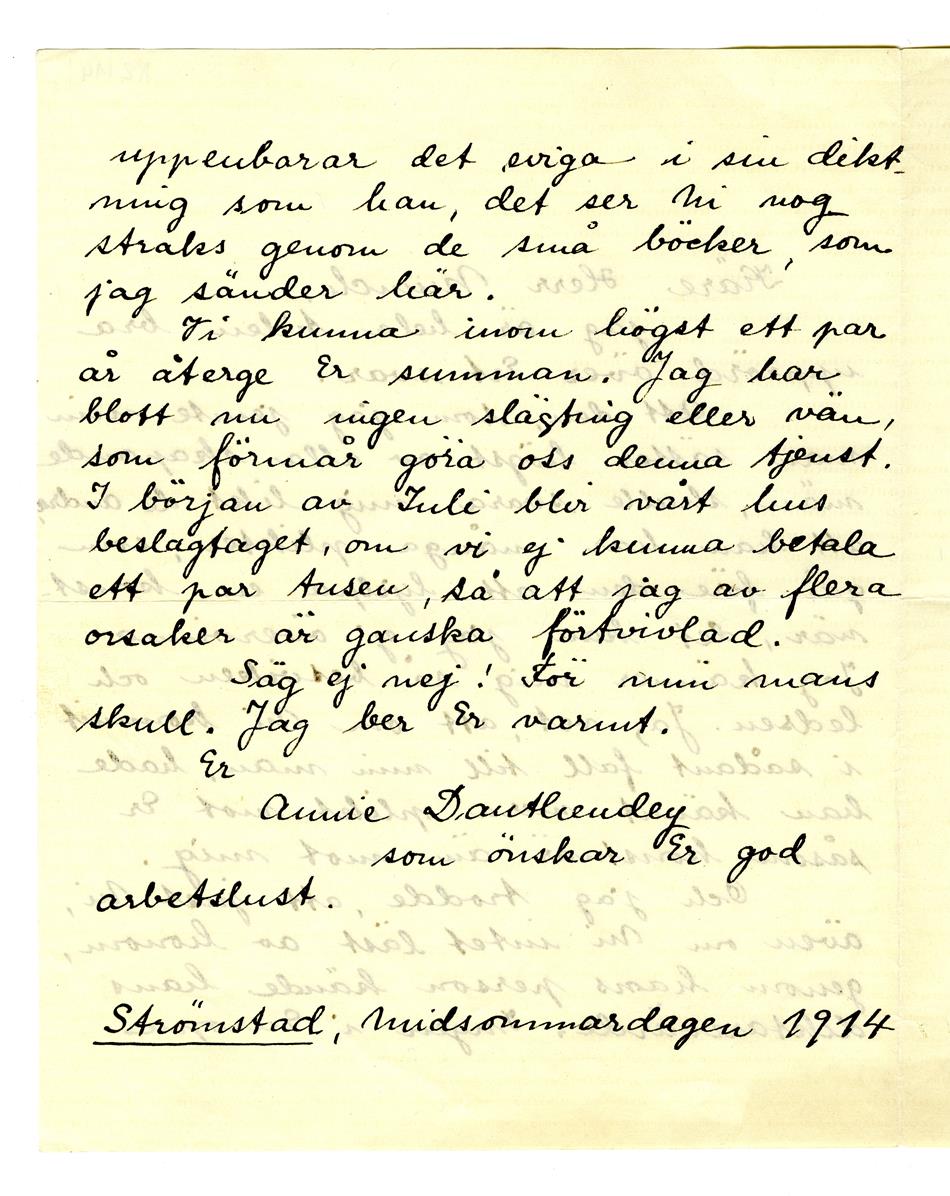 uppenbarar det eviga i sin dikt-
ning som han, det ser Ni nog
straks genom de små böcker, som
jag sänder här.
Vi kunna inom högst ett par
år återge Er summan. Jag har
blott nu ingen slägting eller vän,
som förmår göra oss denna tjenst.
I början av Juli blir vårt hus
beslagtaget, om vi ej kunna betala
ett par tusen, så att jag av flera
orsaker är ganska förtvivlad.
Säg ej nej! För min mans
skull. Jag ber Er varmt.
Er
Annie Dauthendey
som önskar Er god
arbetslust.
Strömstad, Midsommardagen 1914